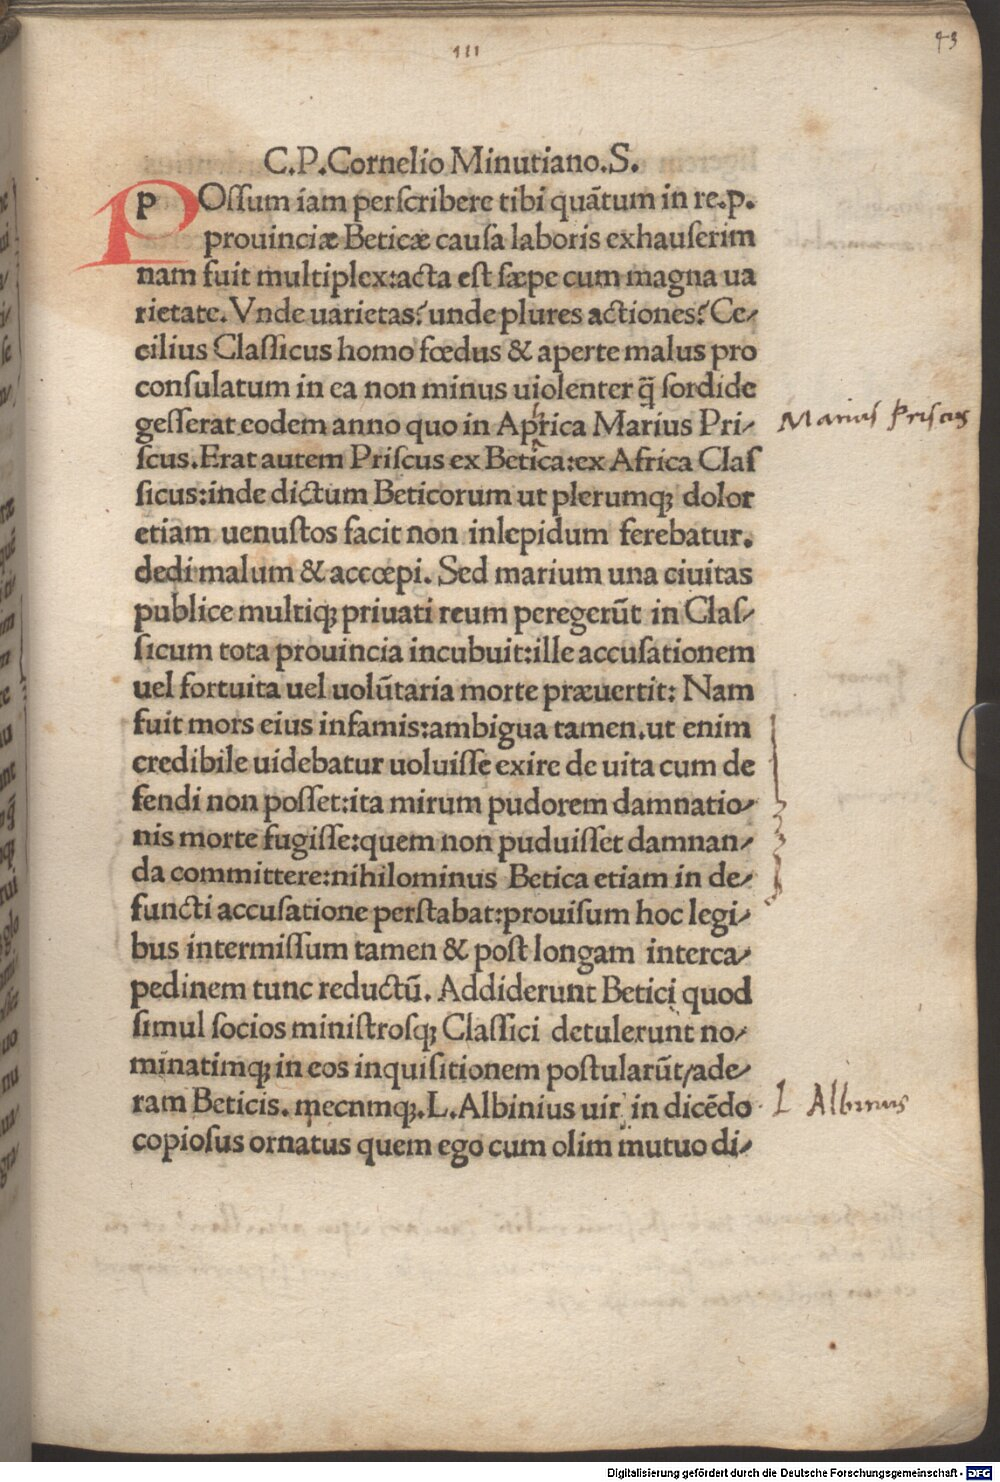 III
43
C.P.Cornelio Minutiano.S.
POssum iam perscribere tibi quātum in re.p.
prouinciæ Beticæ causa laboris exhauserim
nam fuit multiplex:acta est sæpe cum magna ua
rietate.Vnde uarietas?unde plures actiones?Ce-
cilius Classicus homo fœdus & aperte malus pro
consulatum in ea non minus uiolenter q̄ sordide
gesserat eodem anno quo in Aprica Marius Pri-
Marius Priscus
scus.Erat autem Priscus ex Betica:ex Africa Clas
sicus:inde dictum Beticorum ut plerumq; dolor
etiam uenustos facit non inlepidum ferebatur.
dedi malum & accœpi. Sed marium una ciuitas
publice multiq; priuati reum peregerūt in Clas-
sicum tota prouincia incubuit:ille accusationem
uel fortuita uel uolūtaria morte præuertit: Nam
fuit mors eius infamis:ambigua tamen.ut enim
credibile uidebatur uoluisse exire de uita cum de
fendi non posset:ita mirum pudorem damnatio-
nis morte fugisse:quem non puduisset damnan-
da committere:nihilominus Betica etiam in de-
functi accusatione perstabat:prouisum hoc legi-
bus intermissum tamen & post longam interca-
pedinem tunc reductū. Addiderunt Betici quod
simul socios ministrosq; Classici detulerunt no-
minatimq; in eos inquisitionem postularūt/ade-
ram Beticis. mecnmq;.L.Albinius uir in dicēdo
L Albinius
copiosus ornatus quem ego cum olim mutuo di-
Digitalisierung gefördert durch die Deutsche Forschungsgemeinschaft - DFG